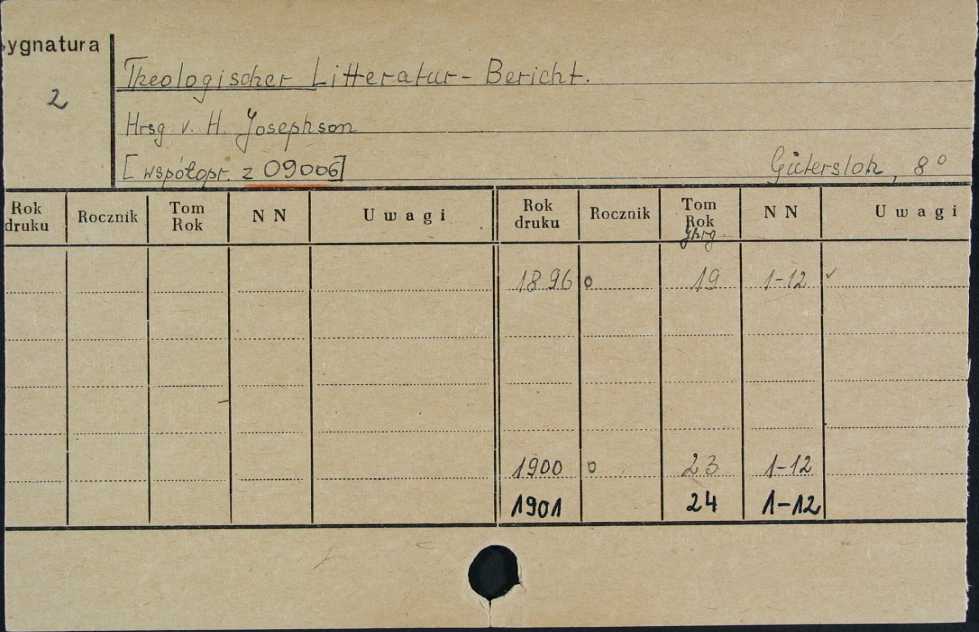 ygnatura
2
Theologischer Litteratur-Bericht.
Hrsg v. H. Josephson
[współopr. z 09006]
Gütersloh, 8°
Rok druku Rocznik Tom Rok NN Uwagi Rok druku Rocznik Tom Rok NN Uwagi
Jhrg
1896 o 19 1-12 ✓
1900 o 23 1-12
1901 24 1-12